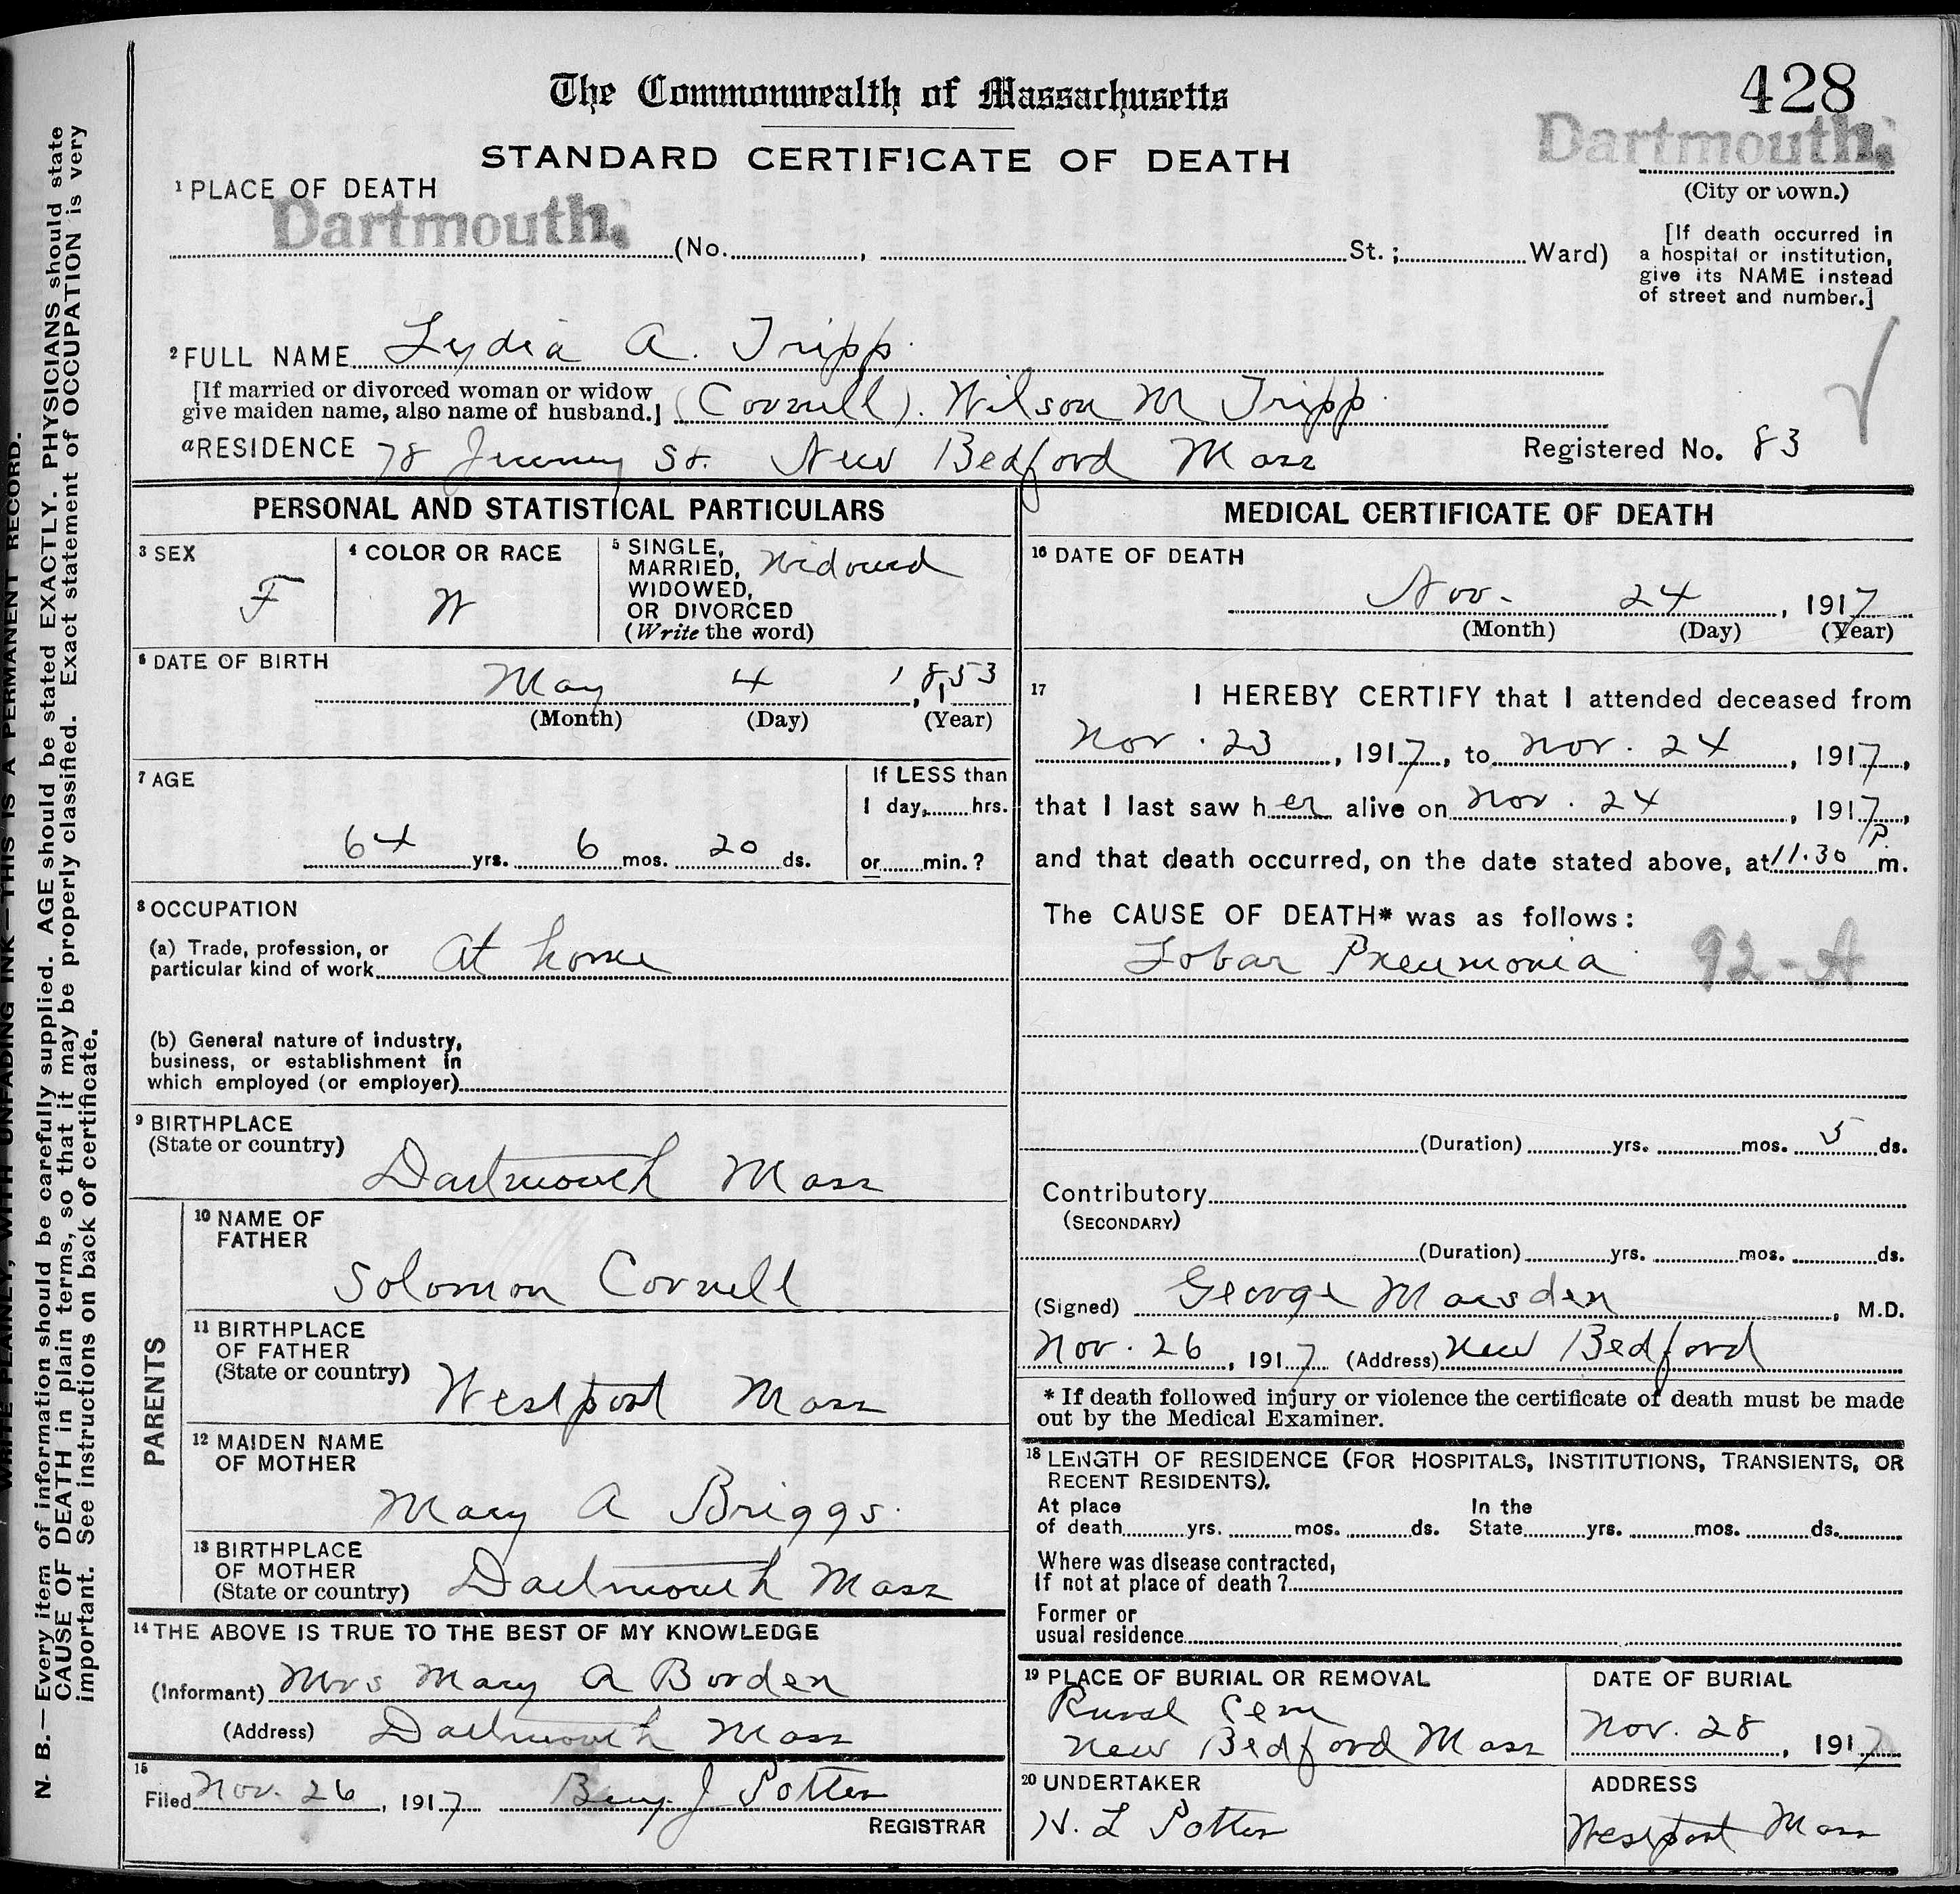 428
The Commonwealth of Massachusetts
Dartmouth.
STANDARD CERTIFICATE OF DEATH
(City or town.)
1 PLACE OF DEATH
Dartmouth.
(No. , St.; Ward)
[If death occurred in
a hospital or institution,
give its NAME instead
of street and number.]
2 FULL NAME Lydia A. Tripp
[If married or divorced woman or widow
give maiden name, also name of husband.] (Cornell). Wilson M Tripp
a RESIDENCE 78 Jenney St. New Bedford Mass
Registered No. 83
PERSONAL AND STATISTICAL PARTICULARS
3 SEX
F
4 COLOR OR RACE
W
5 SINGLE,
MARRIED,
WIDOWED,
OR DIVORCED
(Write the word)
Widowed
6 DATE OF BIRTH
May 4, 1853
(Month) (Day) (Year)
7 AGE
64 yrs. 6 mos. 20 ds.
If LESS than
1 day, hrs.
or min.?
8 OCCUPATION
(a) Trade, profession, or
particular kind of work At home
(b) General nature of industry,
business, or establishment in
which employed (or employer)
9 BIRTHPLACE
(State or country)
Dartmouth Mass
PARENTS
10 NAME OF
FATHER
Solomon Cornell
11 BIRTHPLACE
OF FATHER
(State or country)
Westport Mass
12 MAIDEN NAME
OF MOTHER
Mary A Briggs.
13 BIRTHPLACE
OF MOTHER
(State or country) Dartmouth Mass
14 THE ABOVE IS TRUE TO THE BEST OF MY KNOWLEDGE
(Informant) Mrs Mary A Borden
(Address) Dartmouth Mass
15
Filed Nov. 26, 1917 Benj. J Potter
REGISTRAR
MEDICAL CERTIFICATE OF DEATH
16 DATE OF DEATH
Nov. 24, 1917
(Month) (Day) (Year)
17 I HEREBY CERTIFY that I attended deceased from
Nov. 23, 1917, to Nov. 24, 1917,
that I last saw her alive on Nov. 24, 1917,
and that death occurred, on the date stated above, at 11.30 P. m.
The CAUSE OF DEATH* was as follows:
Lobar Pneumonia 92-A
(Duration) yrs. mos. 5 ds.
Contributory
(SECONDARY)
(Duration) yrs. mos. ds.
(Signed) George Marsden, M.D.
Nov. 26, 1917 (Address) New Bedford
* If death followed injury or violence the certificate of death must be made
out by the Medical Examiner.
18 LENGTH OF RESIDENCE (FOR HOSPITALS, INSTITUTIONS, TRANSIENTS, OR
RECENT RESIDENTS).
At place
of death yrs. mos. ds.
In the
State yrs. mos. ds.
Where was disease contracted,
If not at place of death?
Former or
usual residence
19 PLACE OF BURIAL OR REMOVAL
Rural Cem
New Bedford Mass
DATE OF BURIAL
Nov. 28, 1917
20 UNDERTAKER
H. L Potter
ADDRESS
Westport Mass
WRITE PLAINLY, WITH UNFADING INK—THIS IS A PERMANENT RECORD.
N. B.—Every item of information should be carefully supplied. AGE should be stated EXACTLY. PHYSICIANS should state
CAUSE OF DEATH in plain terms, so that it may be properly classified. Exact statement of OCCUPATION is very
important. See instructions on back of certificate.